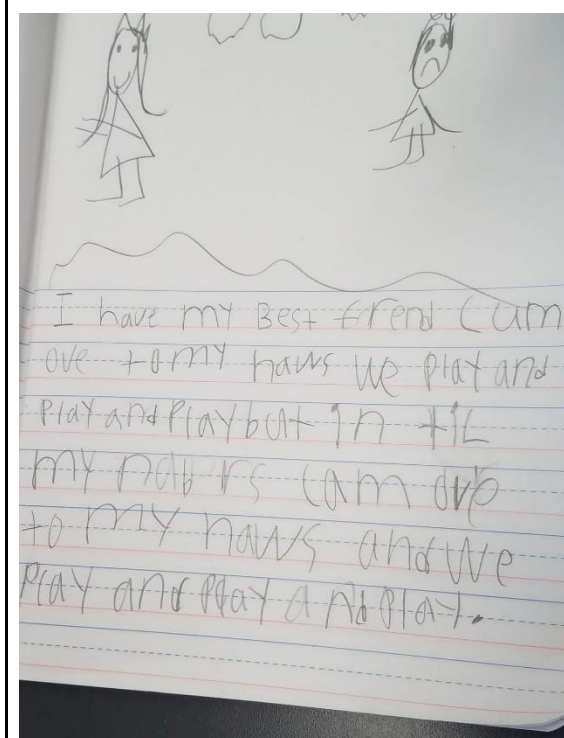 I have my Best frend Cum
ove to my haws we Play and
Play and Play but in til
my nabers cam ove
to my haws and we
Play and Play and Play.